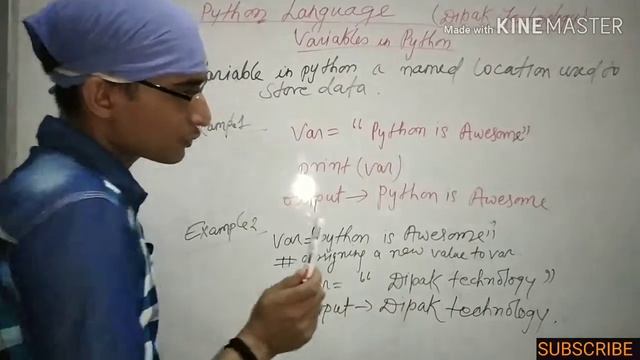 Python Language (Dipak
Made with KINEMASTER
Variables in Python
variable in python a named location used to
store data.
Example1 Var = "Python is Awesome"
print (var)
output → Python is Awesome
Example2 var = "python is Awesome"
# assigning a new value to var
= " Dipak technology"
→ Dipak technology.
SUBSCRIBE